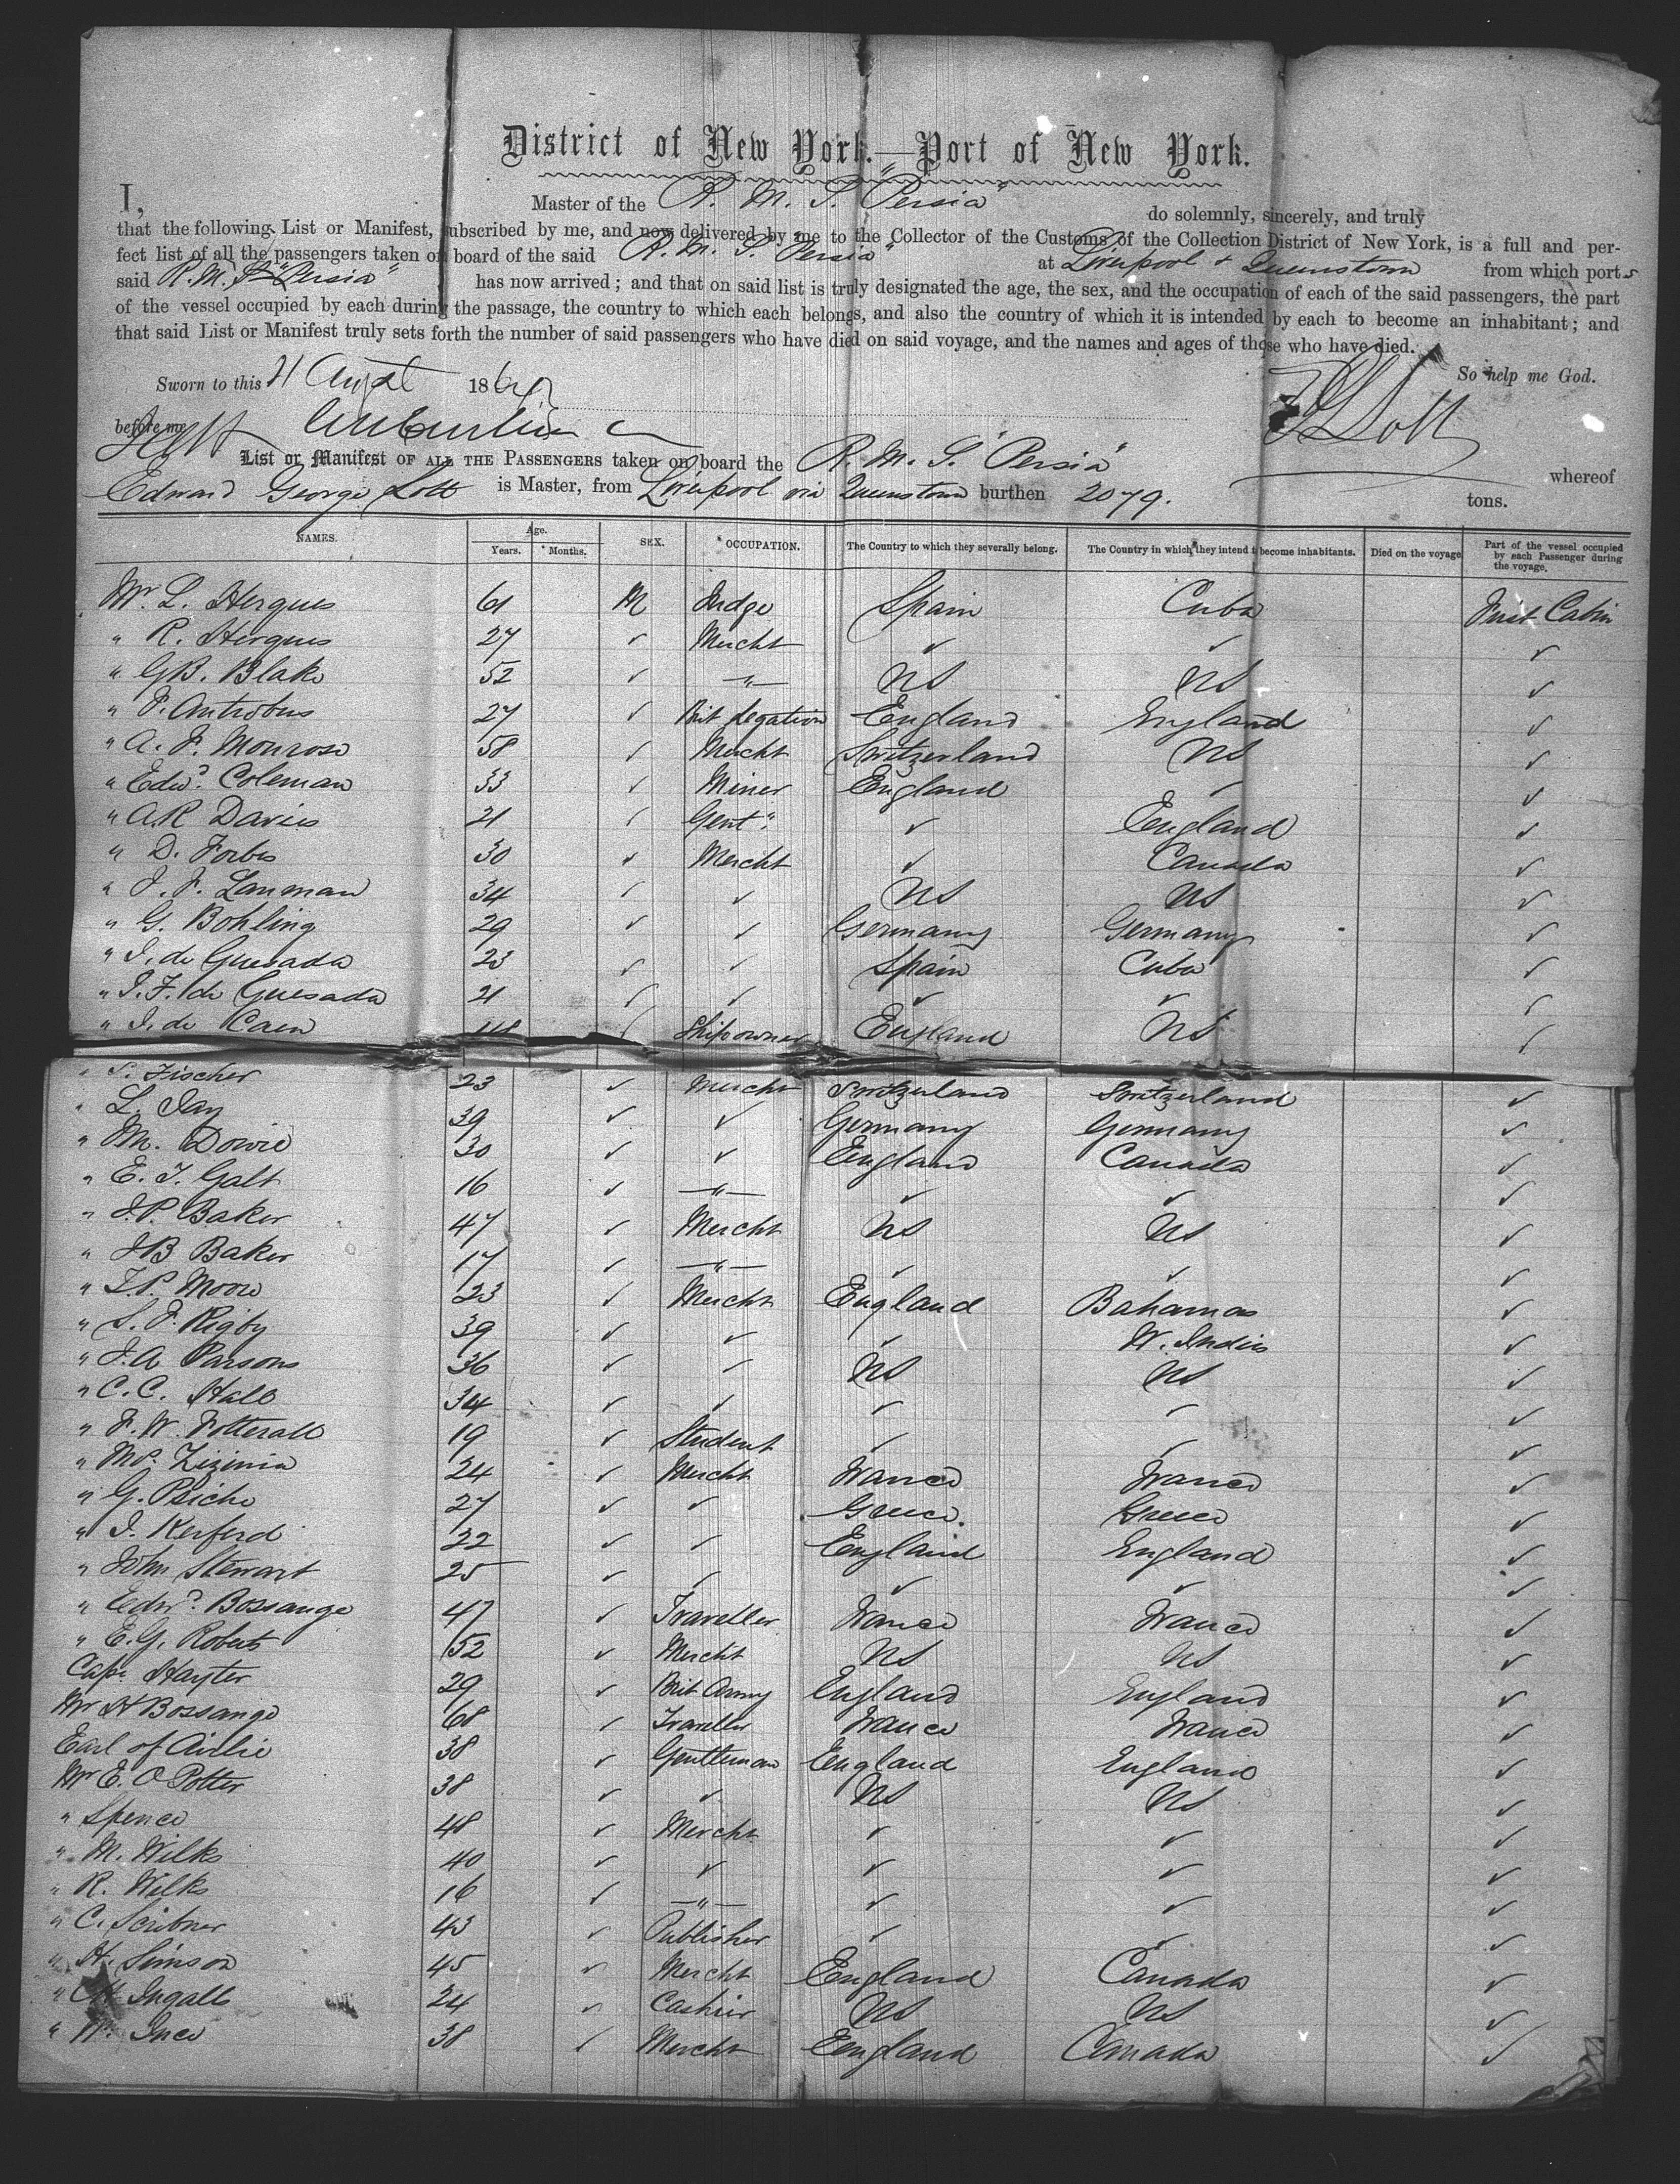 District of New York.—Port of New York.
I, Master of the R. M. S. "Persia" do solemnly, sincerely, and truly
that the following List or Manifest, subscribed by me, and now delivered by me to the Collector of the Customs of the Collection District of New York, is a full and per-
fect list of all the passengers taken on board of the said R. M. S. "Persia" at Liverpool & Queenstown from which ports
said R. M. S. "Persia" has now arrived; and that on said list is truly designated the age, the sex, and the occupation of each of the said passengers, the part
of the vessel occupied by each during the passage, the country to which each belongs, and also the country of which it is intended by each to become an inhabitant; and
that said List or Manifest truly sets forth the number of said passengers who have died on said voyage, and the names and ages of those who have died.
So help me God.
Sworn to this 21 Augst 186
before me E G Lott
List or Manifest OF ALL THE PASSENGERS taken on board the R. M. S. "Persia" whereof
Edward George Lott is Master, from Liverpool via Queenstown burthen 2079. tons.
NAMES. Age. Years. Months. SEX. OCCUPATION. The Country to which they severally belong. The Country in which they intend to become inhabitants. Died on the voyage. Part of the vessel occupied by each Passenger during the voyage.
Mr. L. Hergues 61 M Judge Spain Cuba First Cabin
" R. Hergues 27 ✓ Mercht ✓ ✓ ✓
" G B. Blake 52 ✓ —"— US US ✓
" F. Antrobus 27 ✓ Brit Legation England England ✓
" A. F. Monroso 58 ✓ Mercht Switzerland US ✓
" Edwd. Coleman 33 ✓ Miner England ✓ ✓
" A R Davies 21 ✓ Gent". ✓ England ✓
" D. Forbes 30 ✓ Mercht ✓ Canada ✓
" J. F. Lanman 34 ✓ ✓ US US ✓
" G. Bohling 29 ✓ ✓ Germany Germany ✓
" I. de Quesada 23 ✓ ✓ Spain Cuba ✓
" I. F. de Quesada 21 ✓ ✓ ✓ ✓ ✓
" I. de Caen ✓ Shipowner England US ✓
" S. Fischer 23 ✓ Mercht Switzerland Switzerland ✓
" L. Jay 39 ✓ ✓ Germany Germany ✓
" M. Dowie 30 ✓ ✓ England Canada ✓
" E. T. Galt 16 ✓ —"— ✓ ✓ ✓
" J. P. Baker 47 ✓ Mercht US US ✓
" J B Baker 17 ✓ —"— ✓ ✓ ✓
" T. P. Moore 23 ✓ Mercht England Bahamas ✓
" S. J. Rigby 39 ✓ ✓ ✓ W. Indies ✓
" J. A Parsons 36 ✓ ✓ US US ✓
" C. C. Hall 34 ✓ ✓ ✓ ✓ ✓
" F. W. Fotterall 19 ✓ Student ✓ ✓ ✓
" Zizinia 24 ✓ Mercht France France ✓
" G. Psicho 27 ✓ ✓ Greece. Greece ✓
" I. Kerferd 22 ✓ ✓ England England ✓
" John Stewart 25 ✓ ✓ ✓ ✓ ✓
" Edwd. Bossange 47 ✓ Traveller France France ✓
" E. G. Roberts 52 ✓ Mercht US US ✓
Capn Hayter 29 ✓ Brit Army England England ✓
Mr H Bossange 68 ✓ Traveller France France ✓
Earl of Airlie 38 ✓ Gentleman England England ✓
Mr E. O Potter 38 ✓ ✓ US US ✓
" Spence 48 ✓ Mercht ✓ ✓ ✓
" M. Wilks 40 ✓ ✓ ✓ ✓ ✓
" R. Wilks 16 ✓ —"— ✓ ✓ ✓
" C. Scribner 43 ✓ Publisher ✓ ✓ ✓
" H. Simson 45 ✓ Mercht England Canada ✓
" Ingalls 24 ✓ Cashier US US ✓
" W. Ince 38 ✓ Mercht England Canada ✓